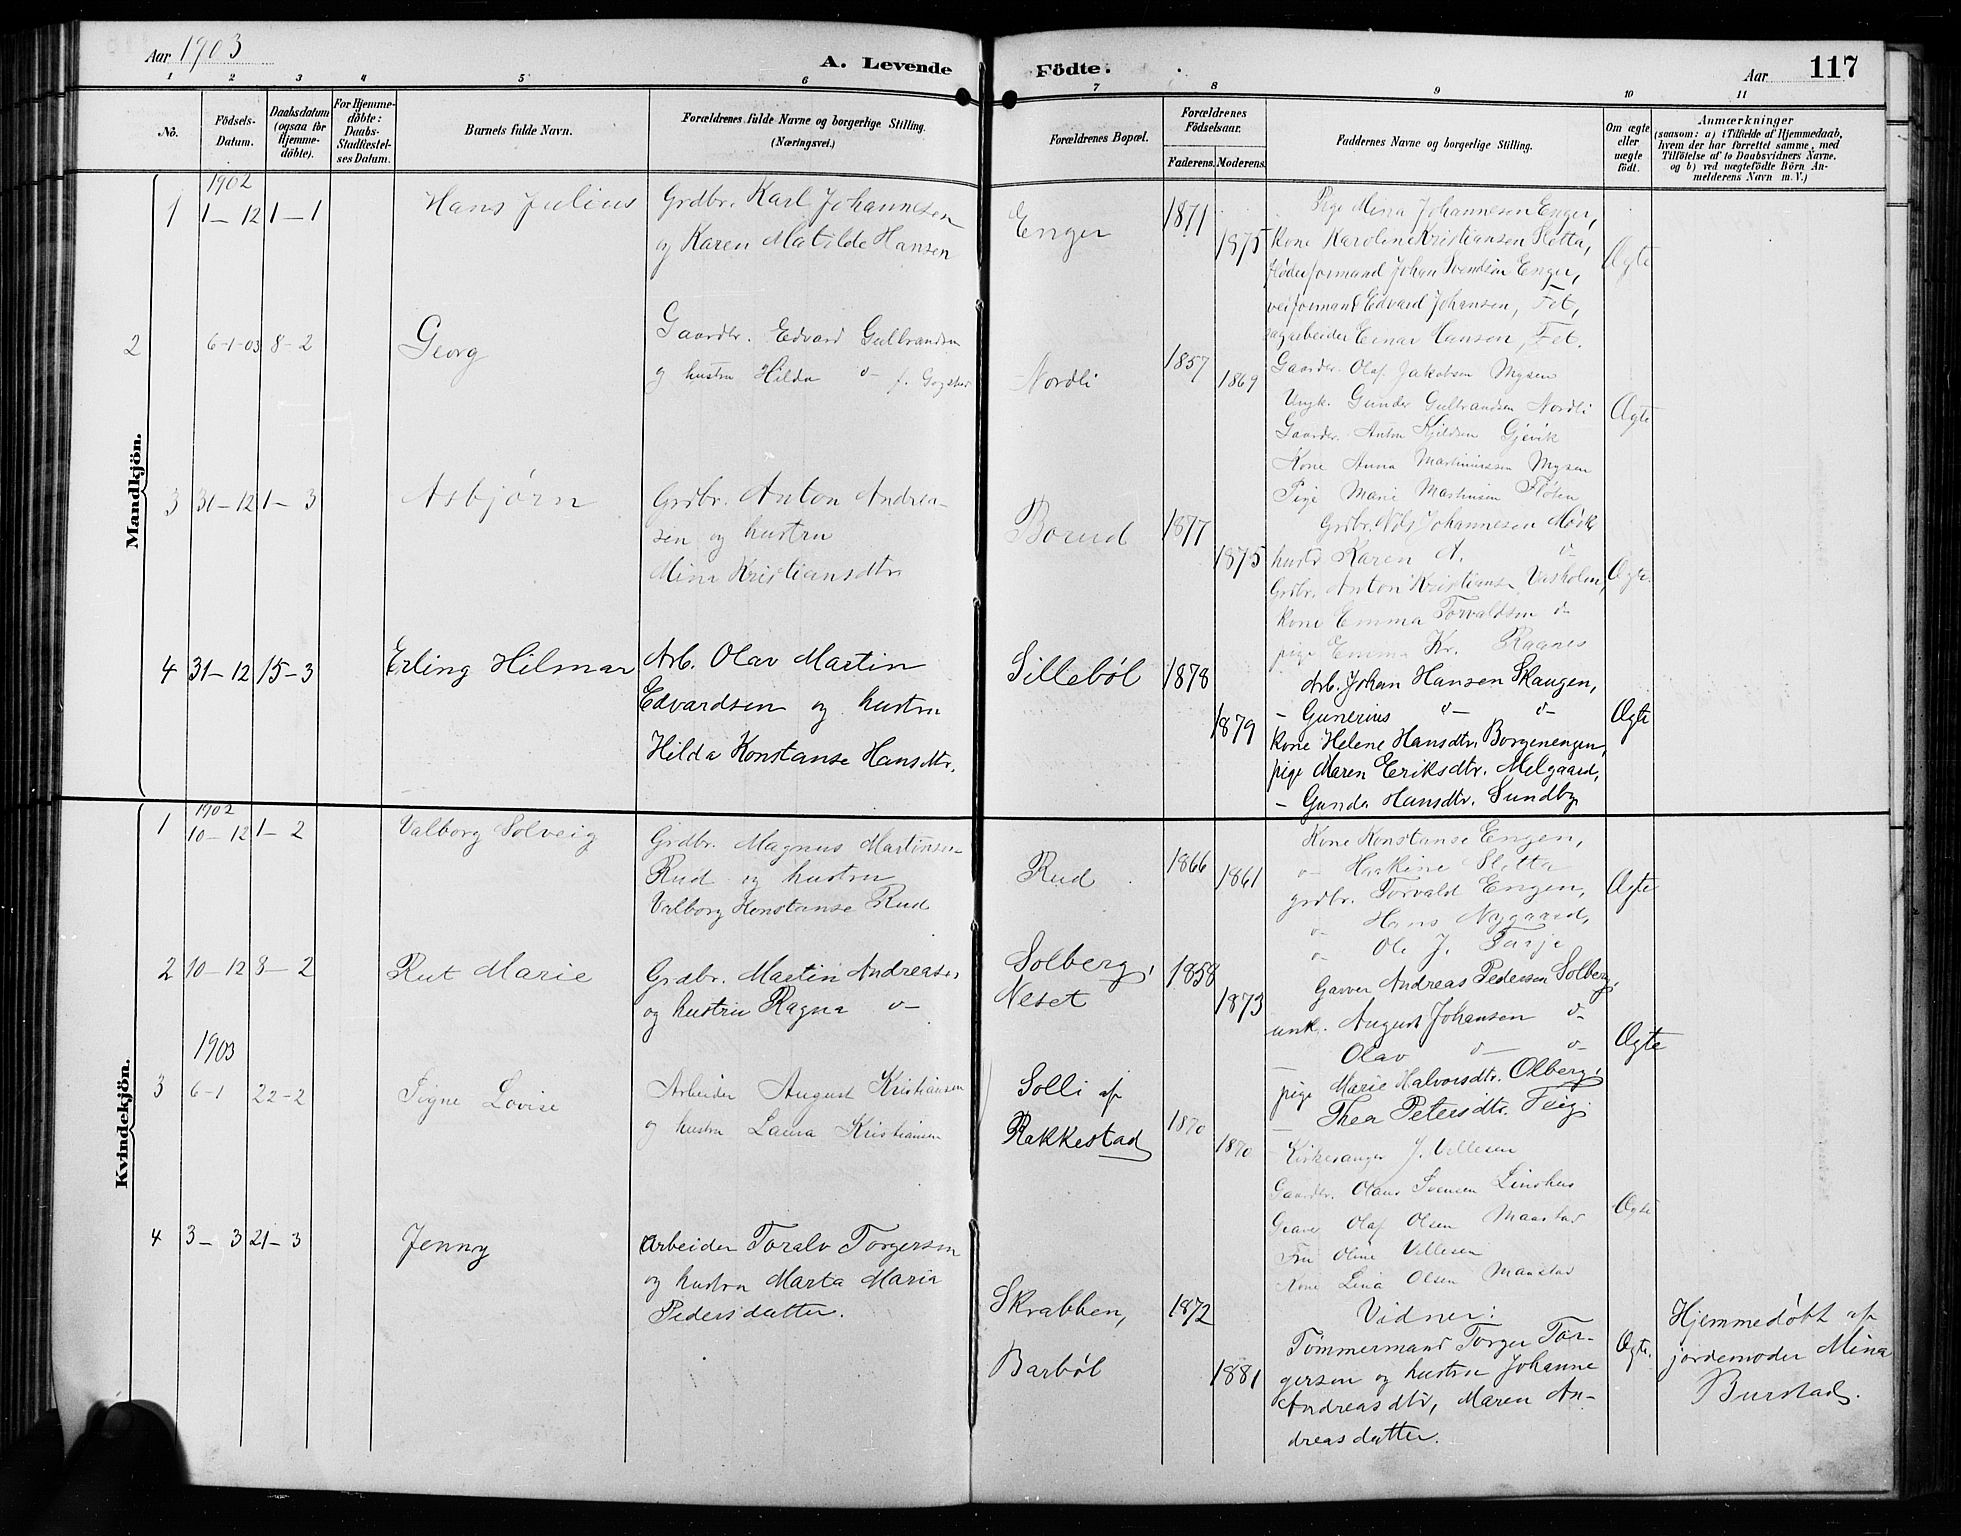 Aar 1903
A. Levende Födte.
Aar
117
1 2 3 4 5 6 7 8 9 10 11
No.
Födsels-
Datum.
Daabsdatum
(ogsaa for
Hjemme-
döbte).
For Hjemme-
döbte:
Daabs-
Stadfæstel-
ses Datum.
Barnets fulde Navn.
Forældrenes fulde Navne og borgerlige Stilling.
(Næringsvei.)
Forældrenes Bopæl.
Forældrenes
Födselsaar.
Faderens. Moderens.
Faddernes Navne og borgerlige Stilling.
Om ægte
eller
uægte
födt.
Anmærkninger
(saasom: a) i Tilfælde af Hjemmedaab,
hvem der har forrettet samme, med
Tilföielse af to Daabsvidners Navne.
og b) ved uægtefödte Börn An-
melderens Navn m. V.)
Mandkjön.
1902
1 1–12 1–1 Hans Julius
Grdbr. Karl Johannesen
og Karen Matilde Hansen
Enger
1871
1875
Pige Mina Johannesen Enger,
Kone Karoline Kristiansen Sletta,
fløderformand Johan Svendsen Enger,
veiformand Edvard Johansen, Fet,
sagarbeider Einar Hansen, Fet.
Ægte
2 6-1-03 8-2 Georg
Gaardbr. Edvard Gulbrandsen
og hustru Hilda d–
Nordli
1857
1869
Gaardbr. Olaf Jakobsen Mysen
Ungk. Gunder Gulbrandsen Nordli
Gaardbr. Anton Kjildsen Gjevik
Kone Anna Martiniussen Mysen
Pige Marie Martinsen Fløten
Ægte
3 31–12 1–3 Asbjørn
Grdbr. Anton Andrea-
sen og hustru
Mina Kristiansdtr.
Borud
1877
1875
Grdbr. Nils Johannesen Mørk
hustr Karen A. d–
Grdbr. Anton Kristianse
kone Emma Torvaldsen d–
pige Emma Kr. Ragnes
Ægte.
4 31–12 15–3 Erling Hilmar
Arb. Olav Martin
Edvardsen og hustru
Hilda Konstanse Hansdtr.
Sillebøl
1878
1879
Arb. Johan Hansen Skaugen,
– Gunerius d– d–
kone Helene Hansdtr. Borgenengen,
pige Maren Eriksdtr. Melgaard,
– Gunda Hansdtr. Sundby
Ægte
Kvindekjön.
1902
1 10–12 1–2 Valborg Solveig
Grdbr. Magnus Martinsen
Rud og hustru
Valborg Konstanse Rud
Rud
1866
1861
Kone Konstanse Engen,
d– Haakine Sletta
grdbr. Torvald Engen,
d– Hans Nygaard,
d– Ole J. Tarje
Ægte
2 10–12 8–2 Rut Marie
Grdbr. Martin Andreasen
og hustru Ragna d–
Solberg,
Neset
1858
1873
Garver Andreas Pedersen Solberg,
unk. August Johansen d–
Olav d– d–
pige Marie Halvorsdtr. Olberg,
– Thea Petersdtr.
Ægte
1903
3 6-1 22-2 Signe Lovise
Arbeider August Kristiansen
og hustru Laura Kristiansen
Solli af
Rakkestad
1870
1870
Kirkesanger J. Villesen
Gaardbr. Olaus Svensen Linshus
Graver Olaf Olsen Maastad
Fru Oline Villesen
Kone Lina Olsen Maastad
Ægte
4 3–3 21–3 Jenny
Arbeider Toralv Torgersen
og hustru Marta Maria
Pedersdatter.
Skrabben,
Barbøl
1872
1881
Vidner:
Tømmermand Torger Tor-
gersen og hustru Johanne
Andreasdtr, Maren An-
dreasdatter.
Ægte.
Hjemmedøbt af
jordemoder Mina
Burstad.